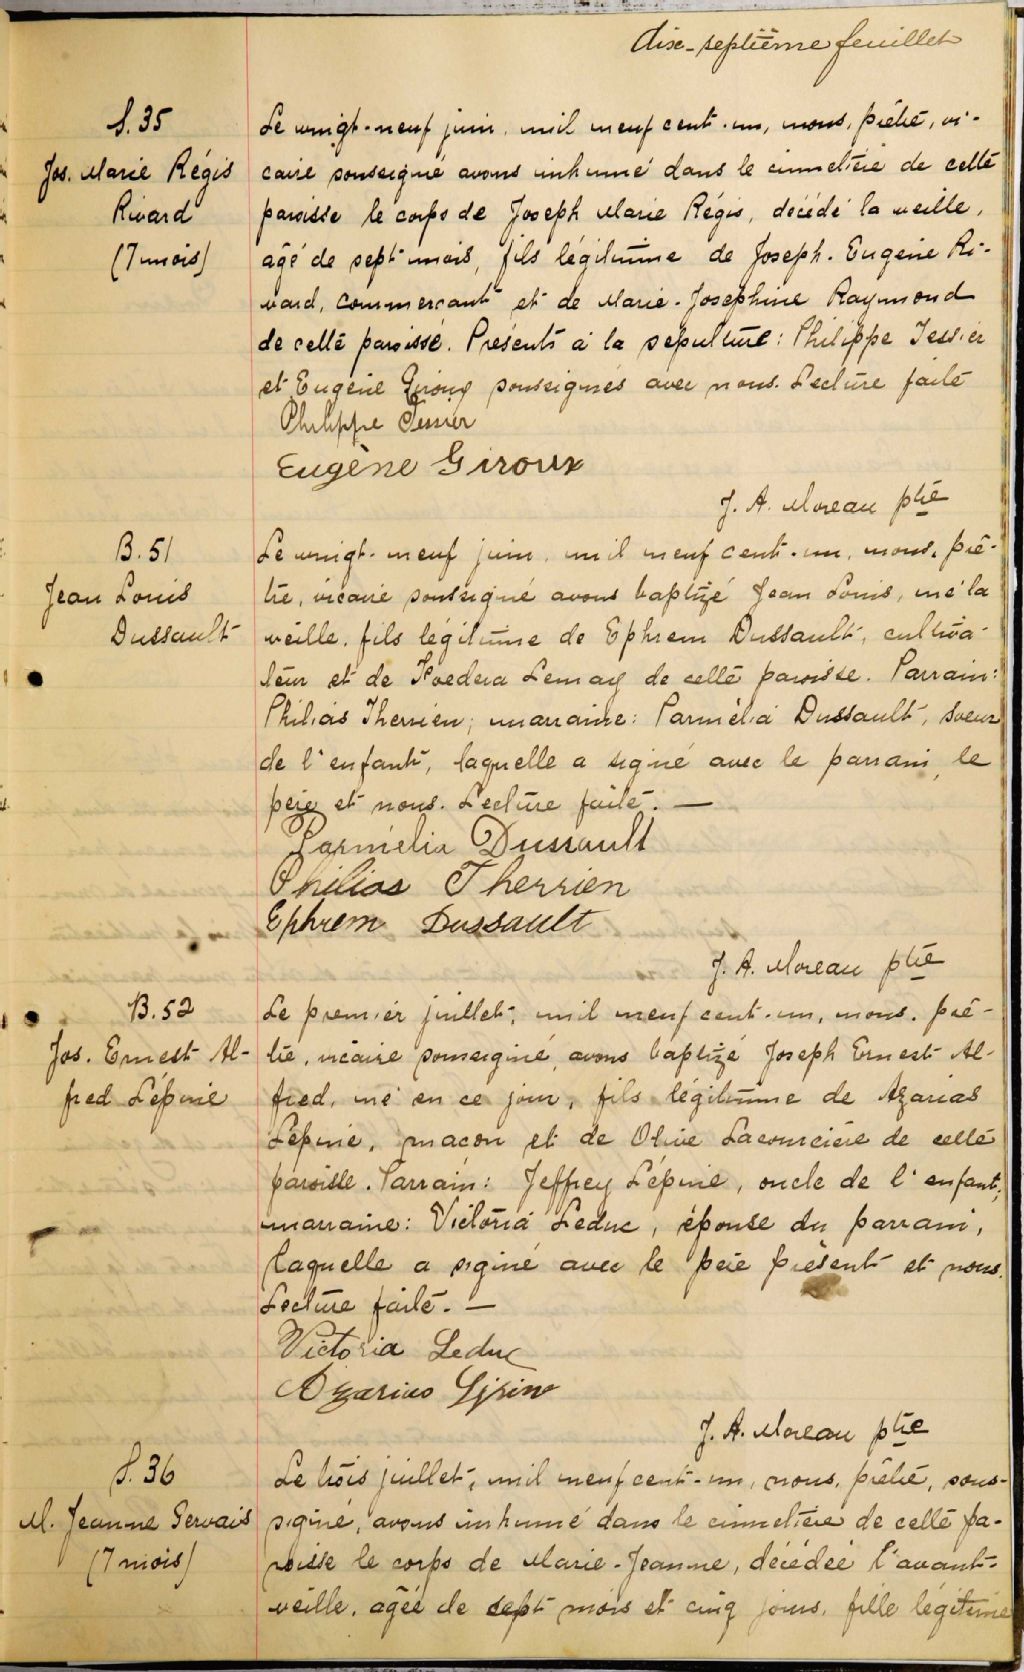 dix-septième feuillet
S. 35
Jos. Marie Régis
Rivard
(7 mois)
Le vingt-neuf juin, mil neuf cent-un, nous, prêtre, vi-
caire soussigné avons inhumé dans le cimetière de cette
paroisse le corps de Joseph Marie Régis, décédé la veille,
agé de sept mois, fils légitime de Joseph-Eugène Ri-
vard, commerçant et de Marie-Josephine Raymond
de cette paroisse. Présents à la sépulture: Philippe Tessier
et Eugène Giroux soussignés avec nous. Lecture faite
Philippe Tessier
Eugène Giroux
J. A. Moreau ptre
B. 51
Jean Louis
Dussault
Le vingt-neuf juin, mil neuf cent-un, nous, prê-
tre, vicaire soussigné avons baptizé Jean Louis, né la
veille, fils légitime de Ephrem Dussault, cultiva-
teur et de Lemay de cette paroisse. Parrain:
Philias Therrien; marraine: Parmélia Dussault, soeur
de l'enfant, laquelle a signé avec le parrain, le
père et nous. Lecture faite. —
Parmélia Dussault
Philias Therrien
Ephrem Dussault
J. A. Moreau ptre
B. 52
Jos. Ernest Al-
fred Lépine
Le premier juillet, mil neuf cent-un, nous, prê-
tre, vicaire soussigné, avons baptizé Joseph Ernest Al-
fred, né en ce jour, fils légitime de Azarias
Lépine, maçon et de Olive Lacourcière de cette
paroisse. Parrain: Jeffrey Lépine, oncle de l'enfant;
marraine: Victoria Leduc, épouse du parrain,
laquelle a signé avec le père présent et nous.
Lecture faite. —
Victoria Leduc
Azarias Lépine
J. A. Moreau ptre
S. 36
M. Jeanne Gervais
(7 mois)
Le trois juillet, mil neuf cent-un, nous, prêtre, sous-
signé, avons inhumé dans le cimetière de cette pa-
roisse le corps de Marie-Jeanne, décédée l'avant-
veille, agée de sept mois et cinq jours, fille légitime